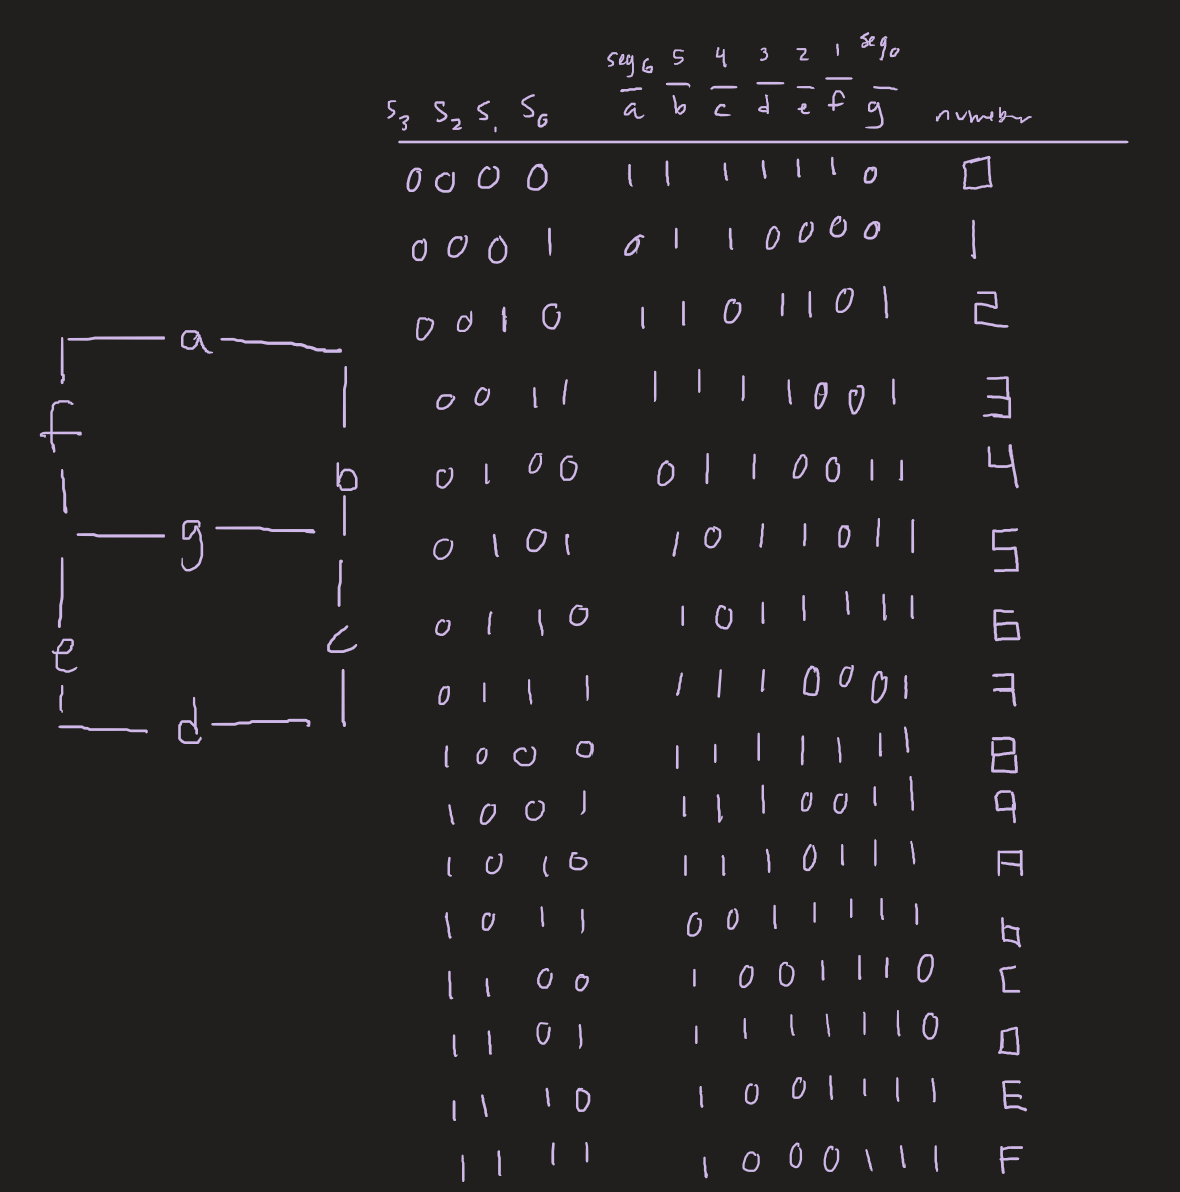 seg6 5 4 3 2 1 seg0
S3 S2 S1 S0 a b c d e f g number
0 0 0 0 1 1 1 1 1 1 0 0
0 0 0 1 0 1 1 0 0 0 0 1
0 0 1 0 1 1 0 1 1 0 1 2
0 0 1 1 1 1 1 1 0 0 1 3
0 1 0 0 0 1 1 0 0 1 1 4
0 1 0 1 1 0 1 1 0 1 1 5
0 1 1 0 1 0 1 1 1 1 1 6
0 1 1 1 1 1 1 0 0 0 1 7
1 0 0 0 1 1 1 1 1 1 1 8
1 0 0 1 1 1 1 0 0 1 1 9
1 0 1 0 1 1 1 0 1 1 1 A
1 0 1 1 0 0 1 1 1 1 1 b
1 1 0 0 1 0 0 1 1 1 0 C
1 1 0 1 1 1 1 1 1 1 0 D
1 1 1 0 1 0 0 1 1 1 1 E
1 1 1 1 1 0 0 0 1 1 1 F
a
f
b
g
e
c
d